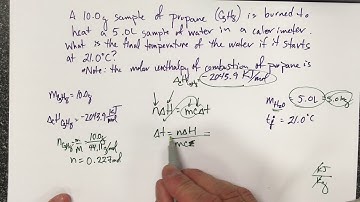 A 10.0g sample of propane (C3H8) is burned to
heat a 5.0L sample of water in a calorimeter.
What is the final temperature of the water if it starts
at 21.0°C?
*Note: the molar enthalpy of combustion of propane is
ΔcH C3H8 -2043.9 kJ/mol
mC3H8 = 10.0g
ΔcH C3H8 = -2043.9 kJ/mol
nC3H8 = m/M = 10.0g / 44.11g/mol
n = 0.227mol
nΔH = mcΔt
Δt = nΔH / mc
mH2O = 5.0L = 5.0kg
ti = 21.0°C
kJ/kg